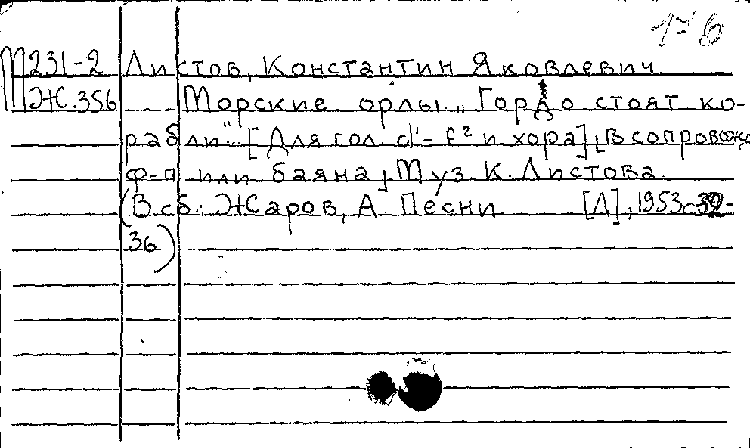 176
М231-2 Листов, Константин Яковлевич.
Ж.356 Морские орлы. „Гордо стоят ко-
рабли". [Для гол. d'-f² и хора]. [В сопровожд.
ф-п или баяна]. Муз. К. Листова.
(В сб.: Жаров, А. Песни [Л], 1953, с. 32-
36)